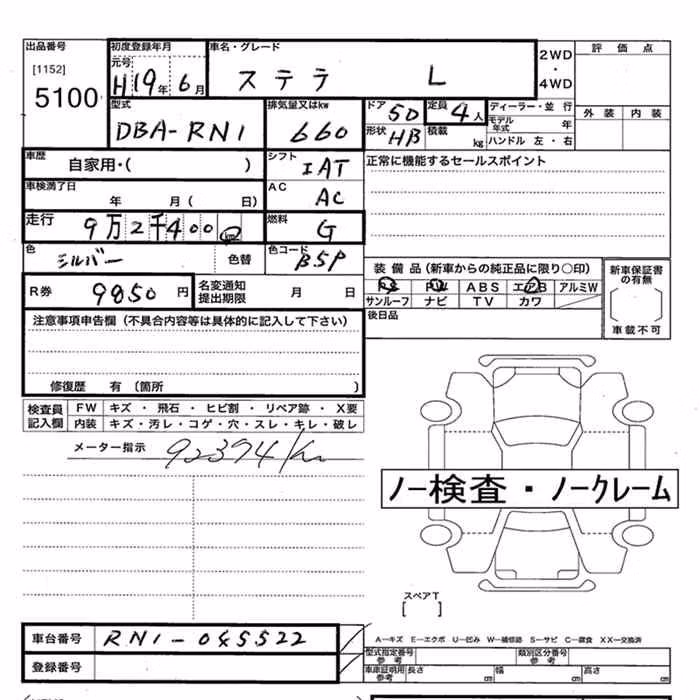 出品番号
[1152]
5100
初度登録年月
元号
H19年6月
車名・グレード
ステラ L
2WD
・
4WD
評価点
外装 内装
型式
DBA-RN1
排気量又はkw
660
ドア 5D
形状 HB
定員 4人
積載 kg
ディーラー・並行
モデル年式 年
ハンドル 左・右
車歴 自家用・( )
シフト IAT
正常に機能するセールスポイント
車検満了日 年 月( 日)
AC AC
走行 9万2千400km
燃料 G
色 シルバー 色替
色コード B5P
装備品(新車からの純正品に限り○印)
PS PW ABS エアB アルミW
サンルーフ ナビ TV カワ
新車保証書の有無
車載不可
R券 9850円
名変通知
提出期限 月 日
後日品
注意事項申告欄(不具合内容等は具体的に記入して下さい)
修復歴 有〔箇所 〕
検査員記入欄
FW キズ・飛石・ヒビ割・リペア跡・X要
内装 キズ・汚レ・コゲ・穴・スレ・キレ・破レ
メーター指示 92394km
ノー検査・ノークレーム
スペアT
[ ]
車台番号 RN1-045522
登録番号
A-キズ E-エクボ U-凹み W-補修跡 S-サビ C-腐食 XX-交換済
型式指定番号 参考
類別区分番号 参考
車庫証明用 参考 長さ cm 幅 cm 高さ cm